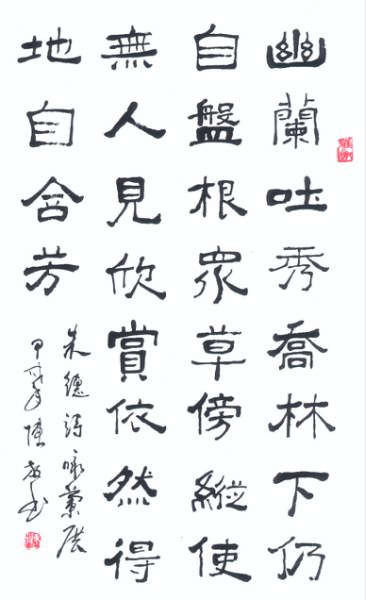 幽蘭吐秀喬林下仍
自盤根眾草傍縱使
無人見欣賞依然得
地自含芳
朱德詩咏蘭展
甲 年 陳 书